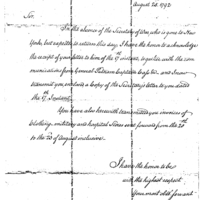 August 2d. 1792
Sir,
In the absence of the Secretary of War, who is gone to New
York, but expected to return this day, I have the honor to acknowledge
the receipt of your letter to him of the 9th instant, together with the com-
munications from General Putnam Captain
transmit you enclosed a Copy of the Secretary's letter to you dated
the 9th Instant.
You have also herewith transmitted you invoices of
Clothing, military and hospital Stores sent forward from the 20th
to the 20 of August inclusive.
I have the honor to be
with the highest respect
Your most obd. Servant